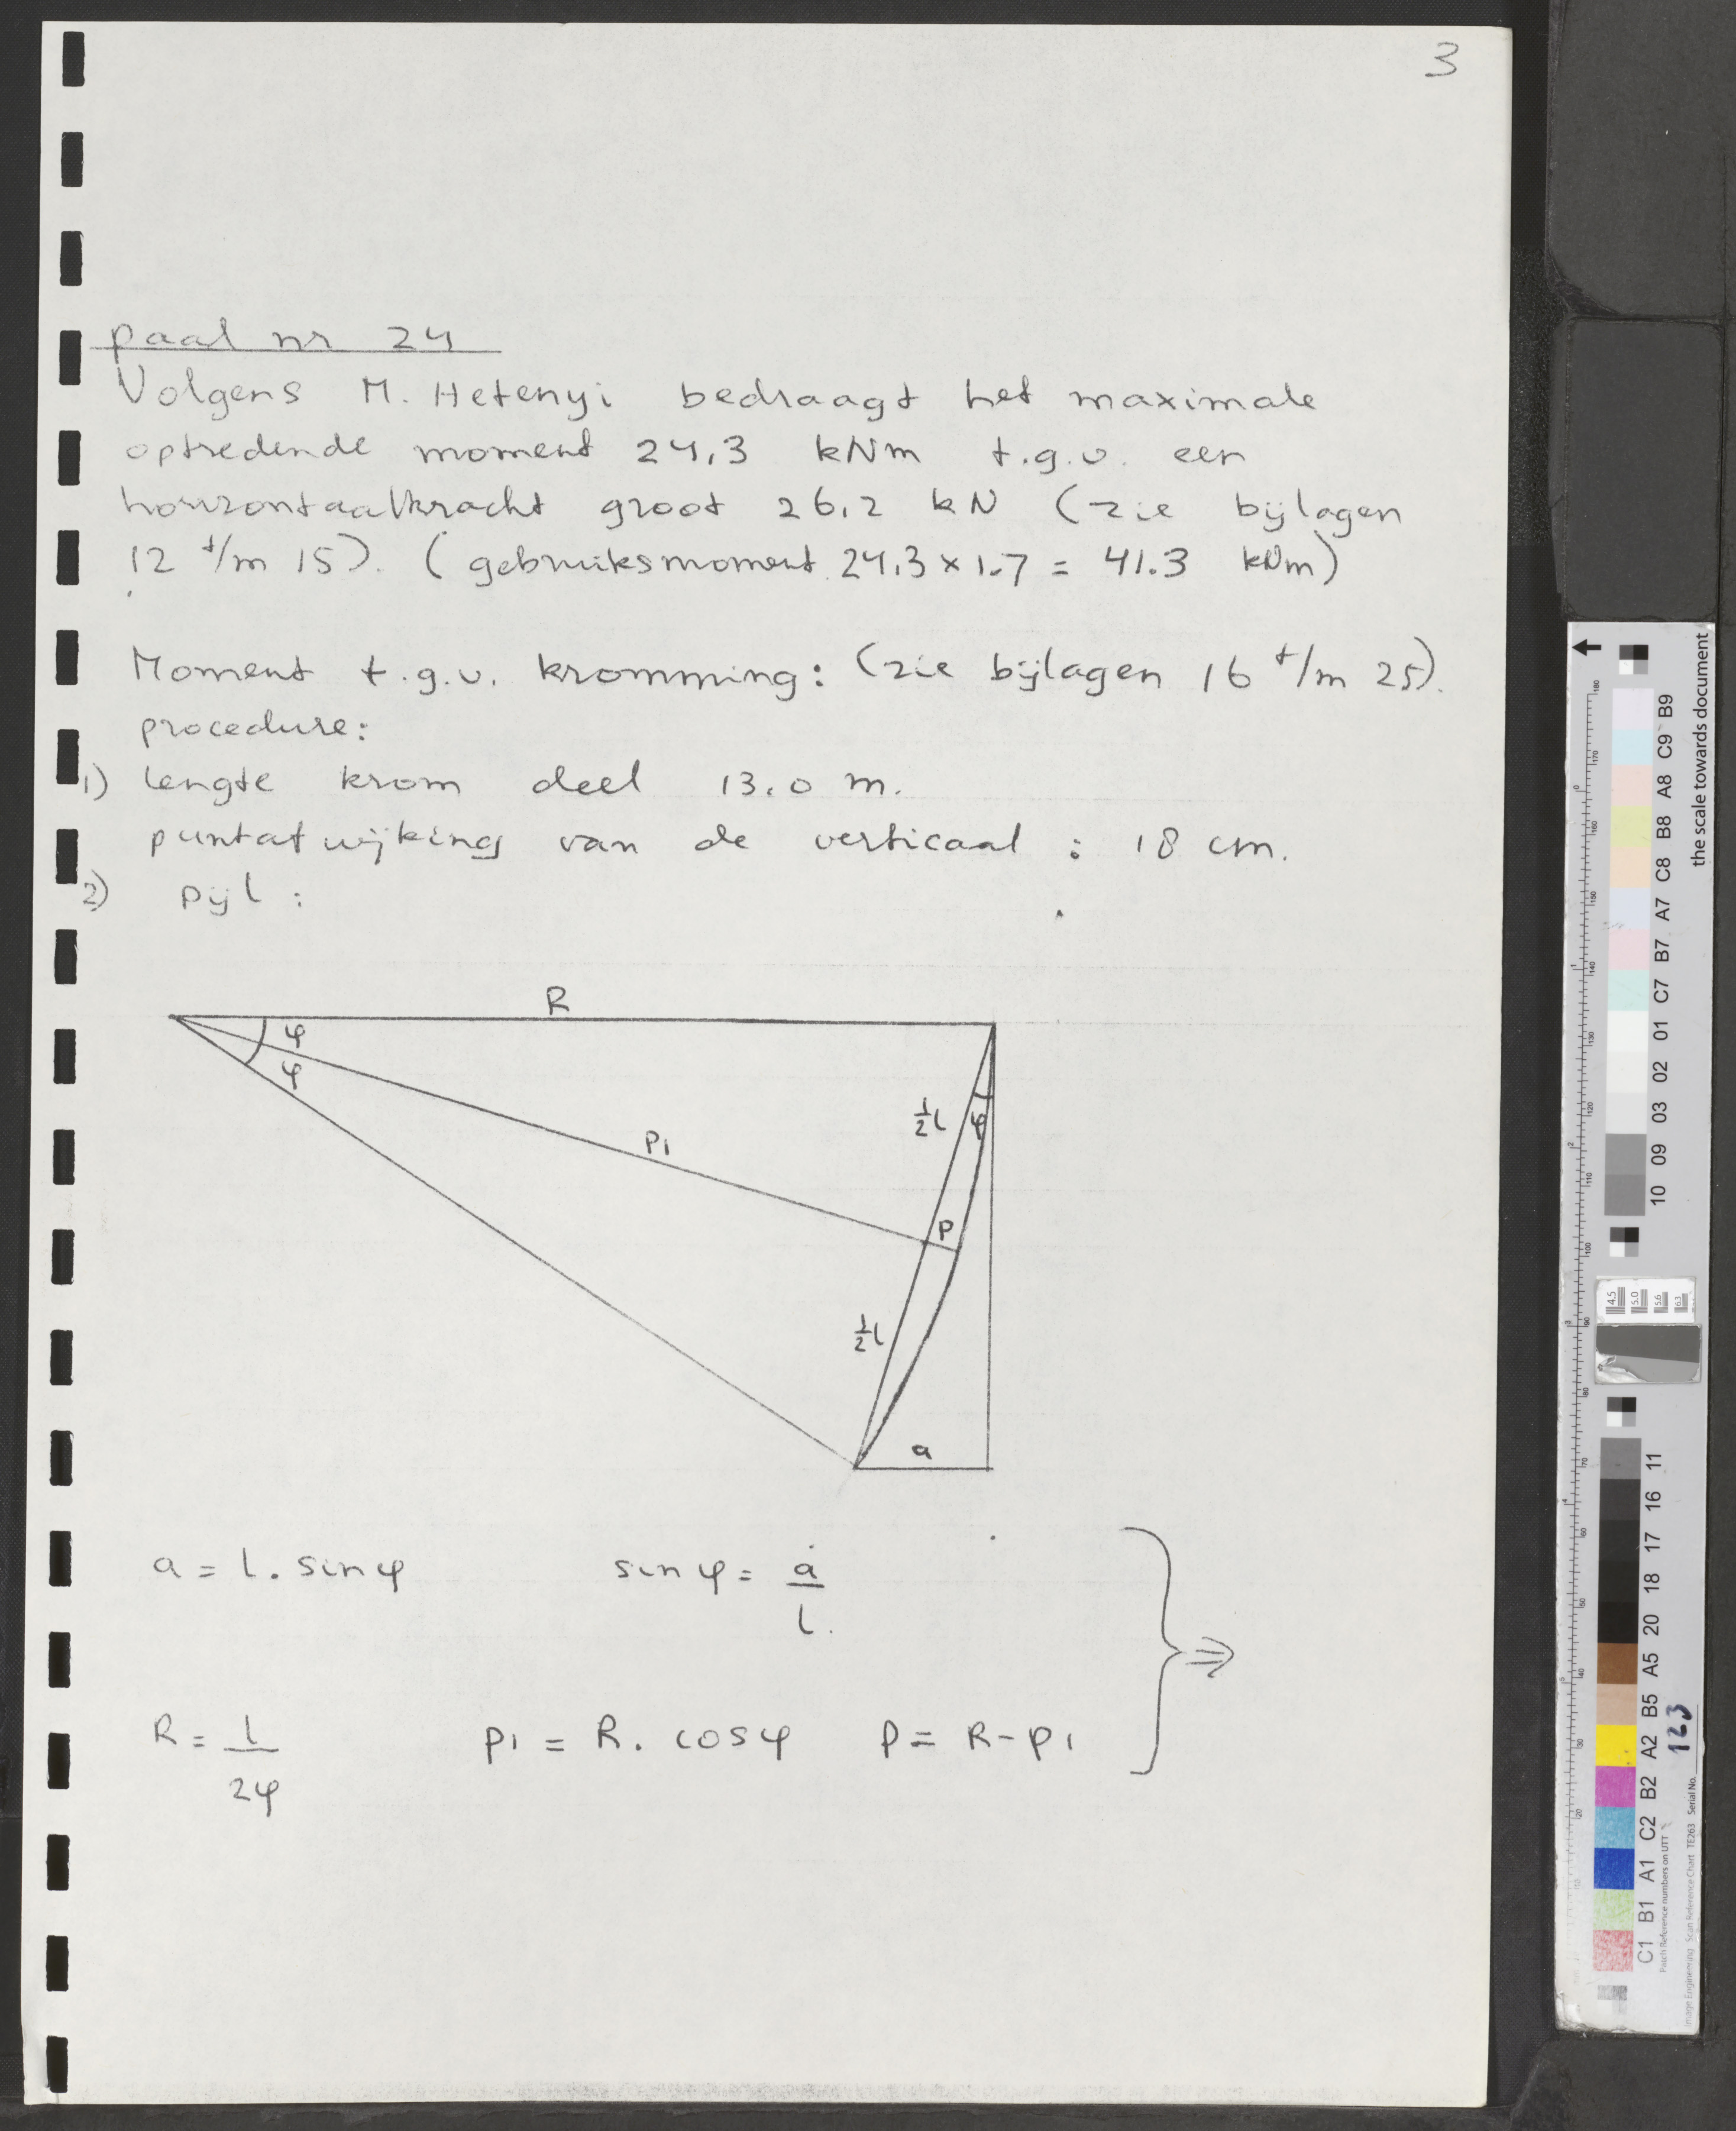 3
paal nr 24
Volgens M. Hetenyi bedraagt het maximale
optredende moment 24,3 kNm t.g.v. een
horizontaalkracht groot 26,2 kN (zie bijlagen
12 t/m 15). (gebruiksmoment 24,3 x 1.7 = 41.3 kNm)
Moment t.g.v. kromming: (zie bijlagen 16 t/m 25).
procedure:
1) lengte krom deel 13.0 m.
puntafwijking van de verticaal : 18 cm.
2) pijl :
R
φ
φ
½l
φ
P1
P
½l
a
a = l. sinφ sinφ = a/l.
R = l/2φ P1 = R. cosφ P = R-P1
} ⇒
the scale towards document
C1 B1 A1 C2 B2 A2 B5 A5 20 18 17 16 11
10 09 03 02 01 C7 B7 A7 C8 B8 A8 C9 B9
4.5 5.0 5.6 6.3
Patch Reference numbers on UTT
Image Engineering Scan Reference Chart TE263 Serial No. 123